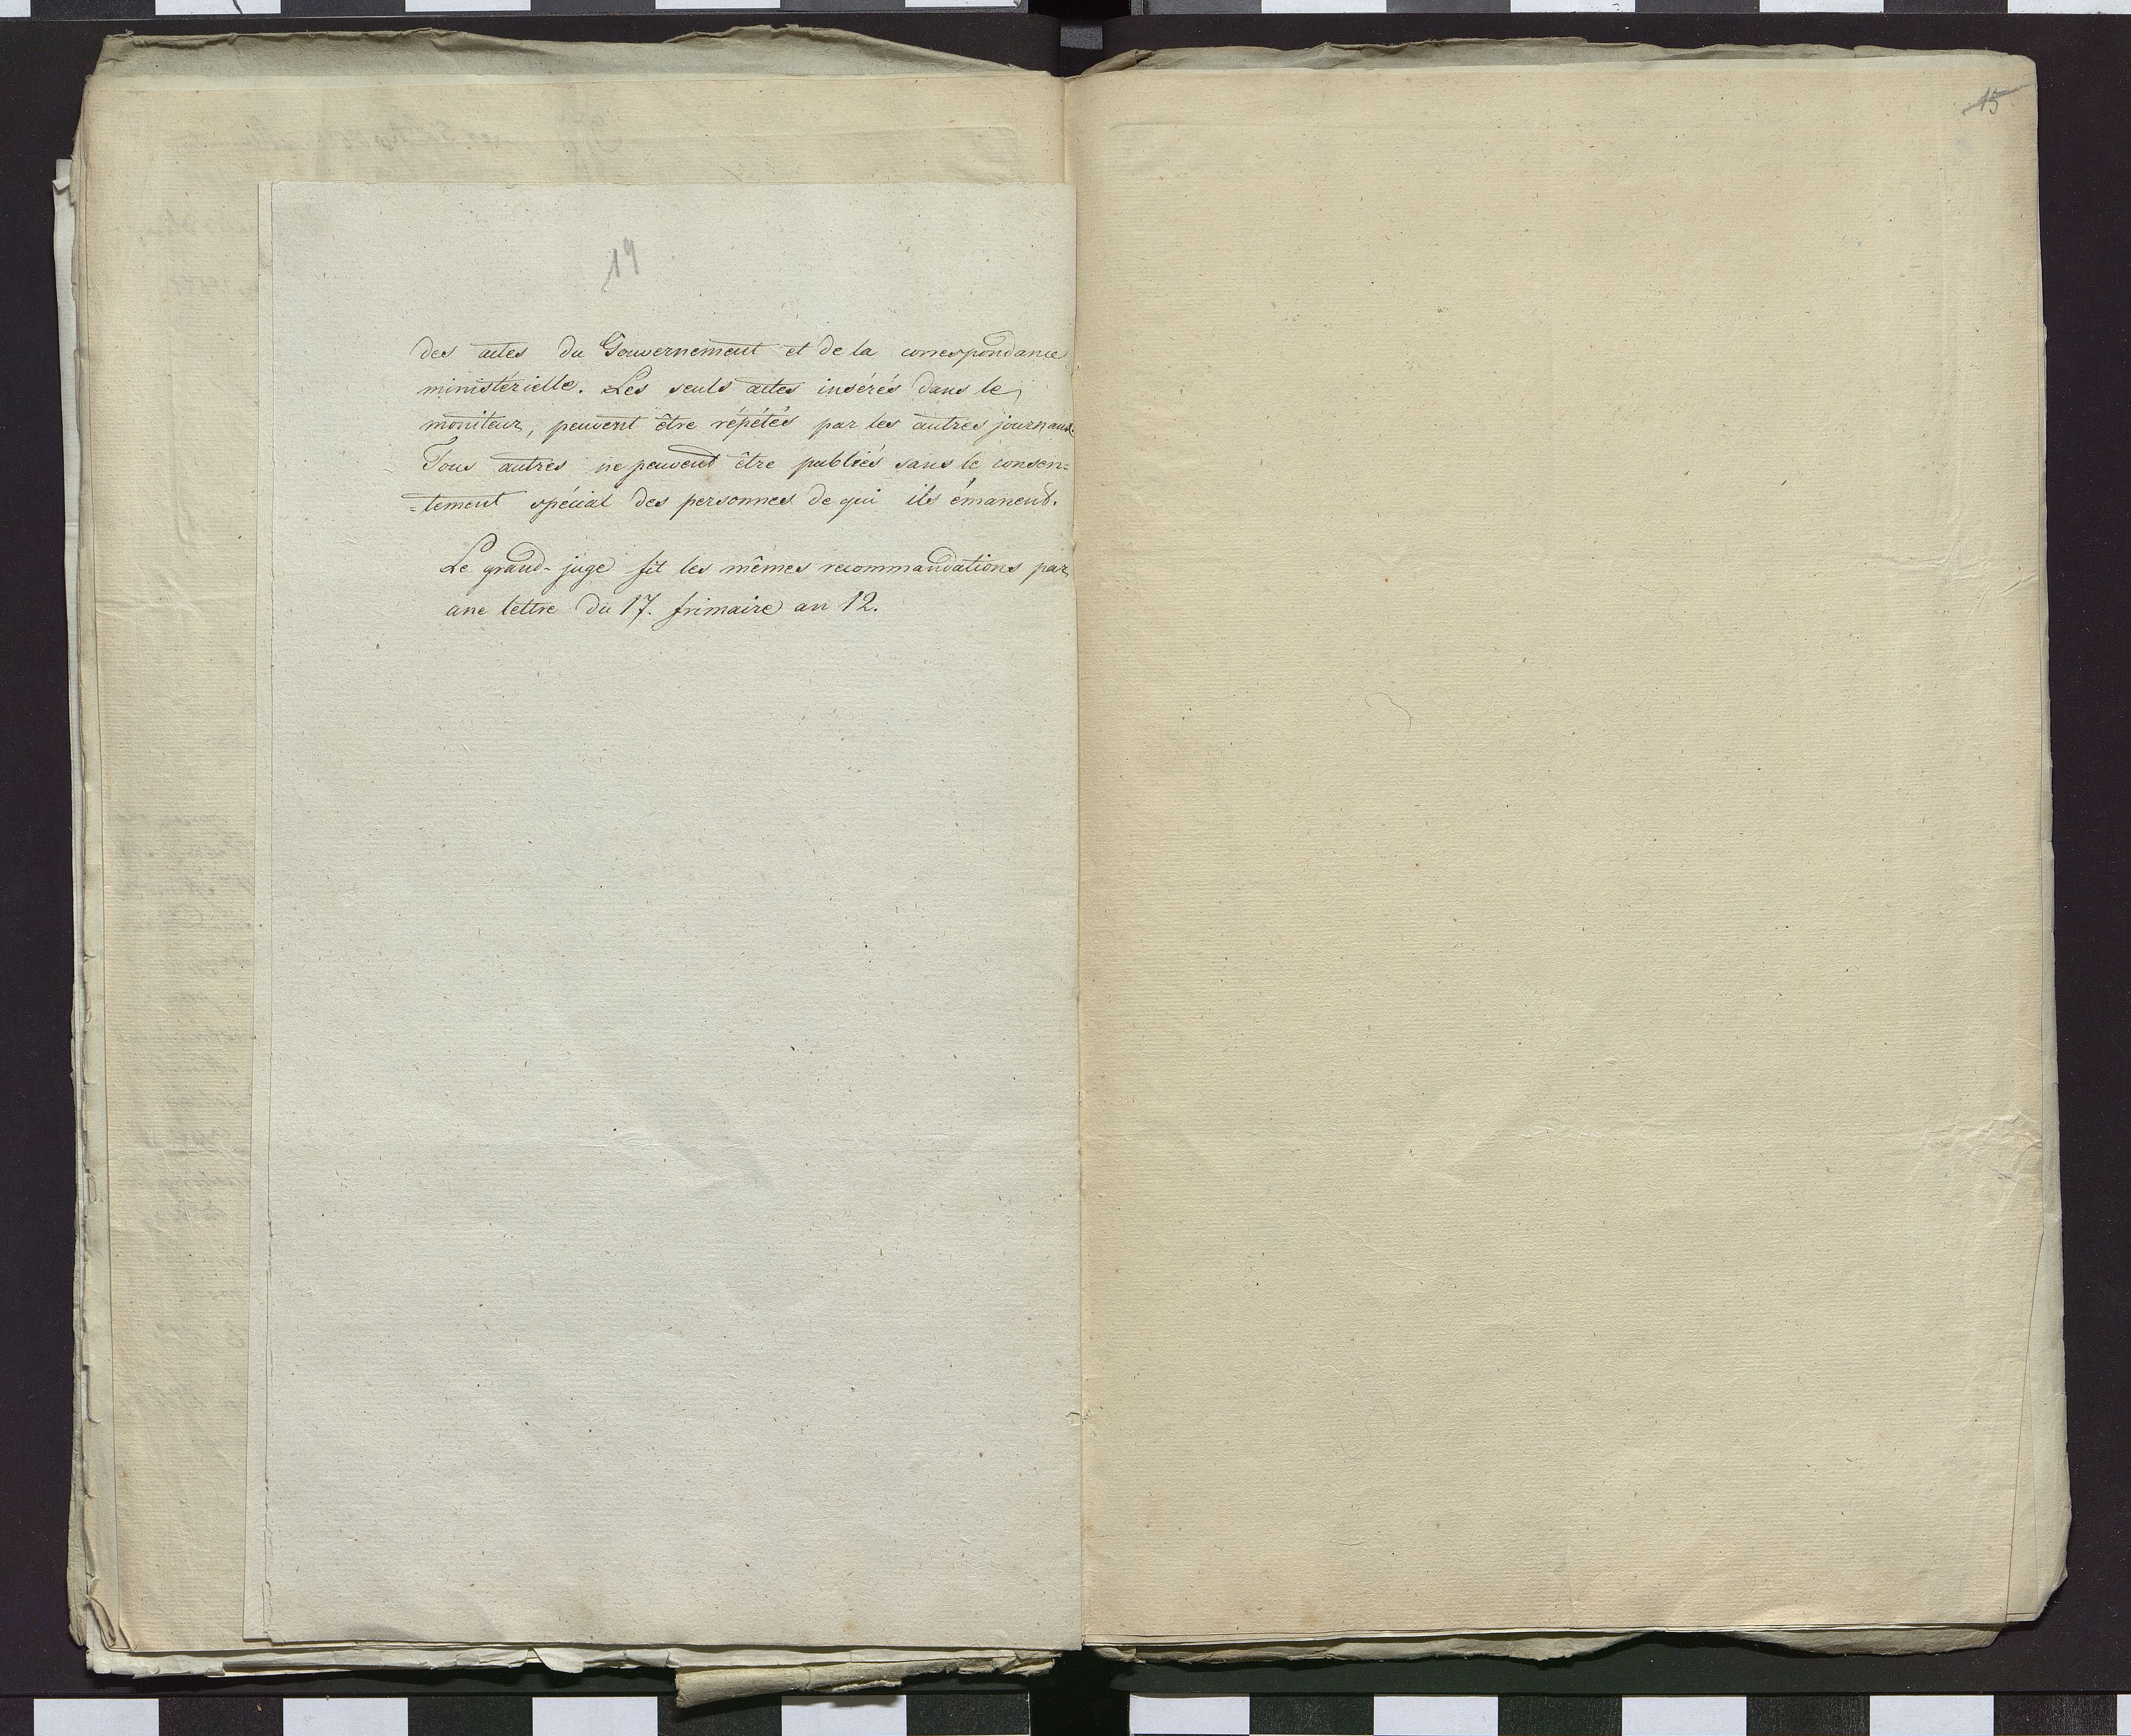 19
des actes du Gouvernement et de la correspondance
ministérielle. Les seuls actes insérés dans le
moniteur, peuvent être répétés par les autres journaux.
Tous autres ne peuvent être publiés sans le consen=
=tement spécial des personnes de qui ils émanent.
Le grand-juge fit les mêmes recommandations par
une lettre du 17. frimaire an 12.
15